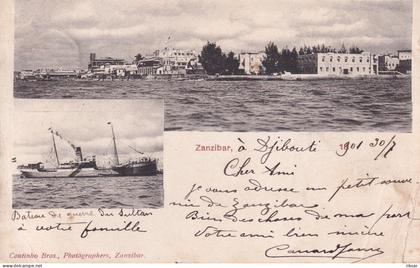 Zanzibar, à Djibouti 1901 30/7
Cher Ami
je vous adresse un petit souve
nir de Zanzibar
Bien des choses de ma part
Votre ami bien sincère
Bateau de guerre du Sultan
à votre famille
Coutinho Bros., Photographers, Zanzibar.